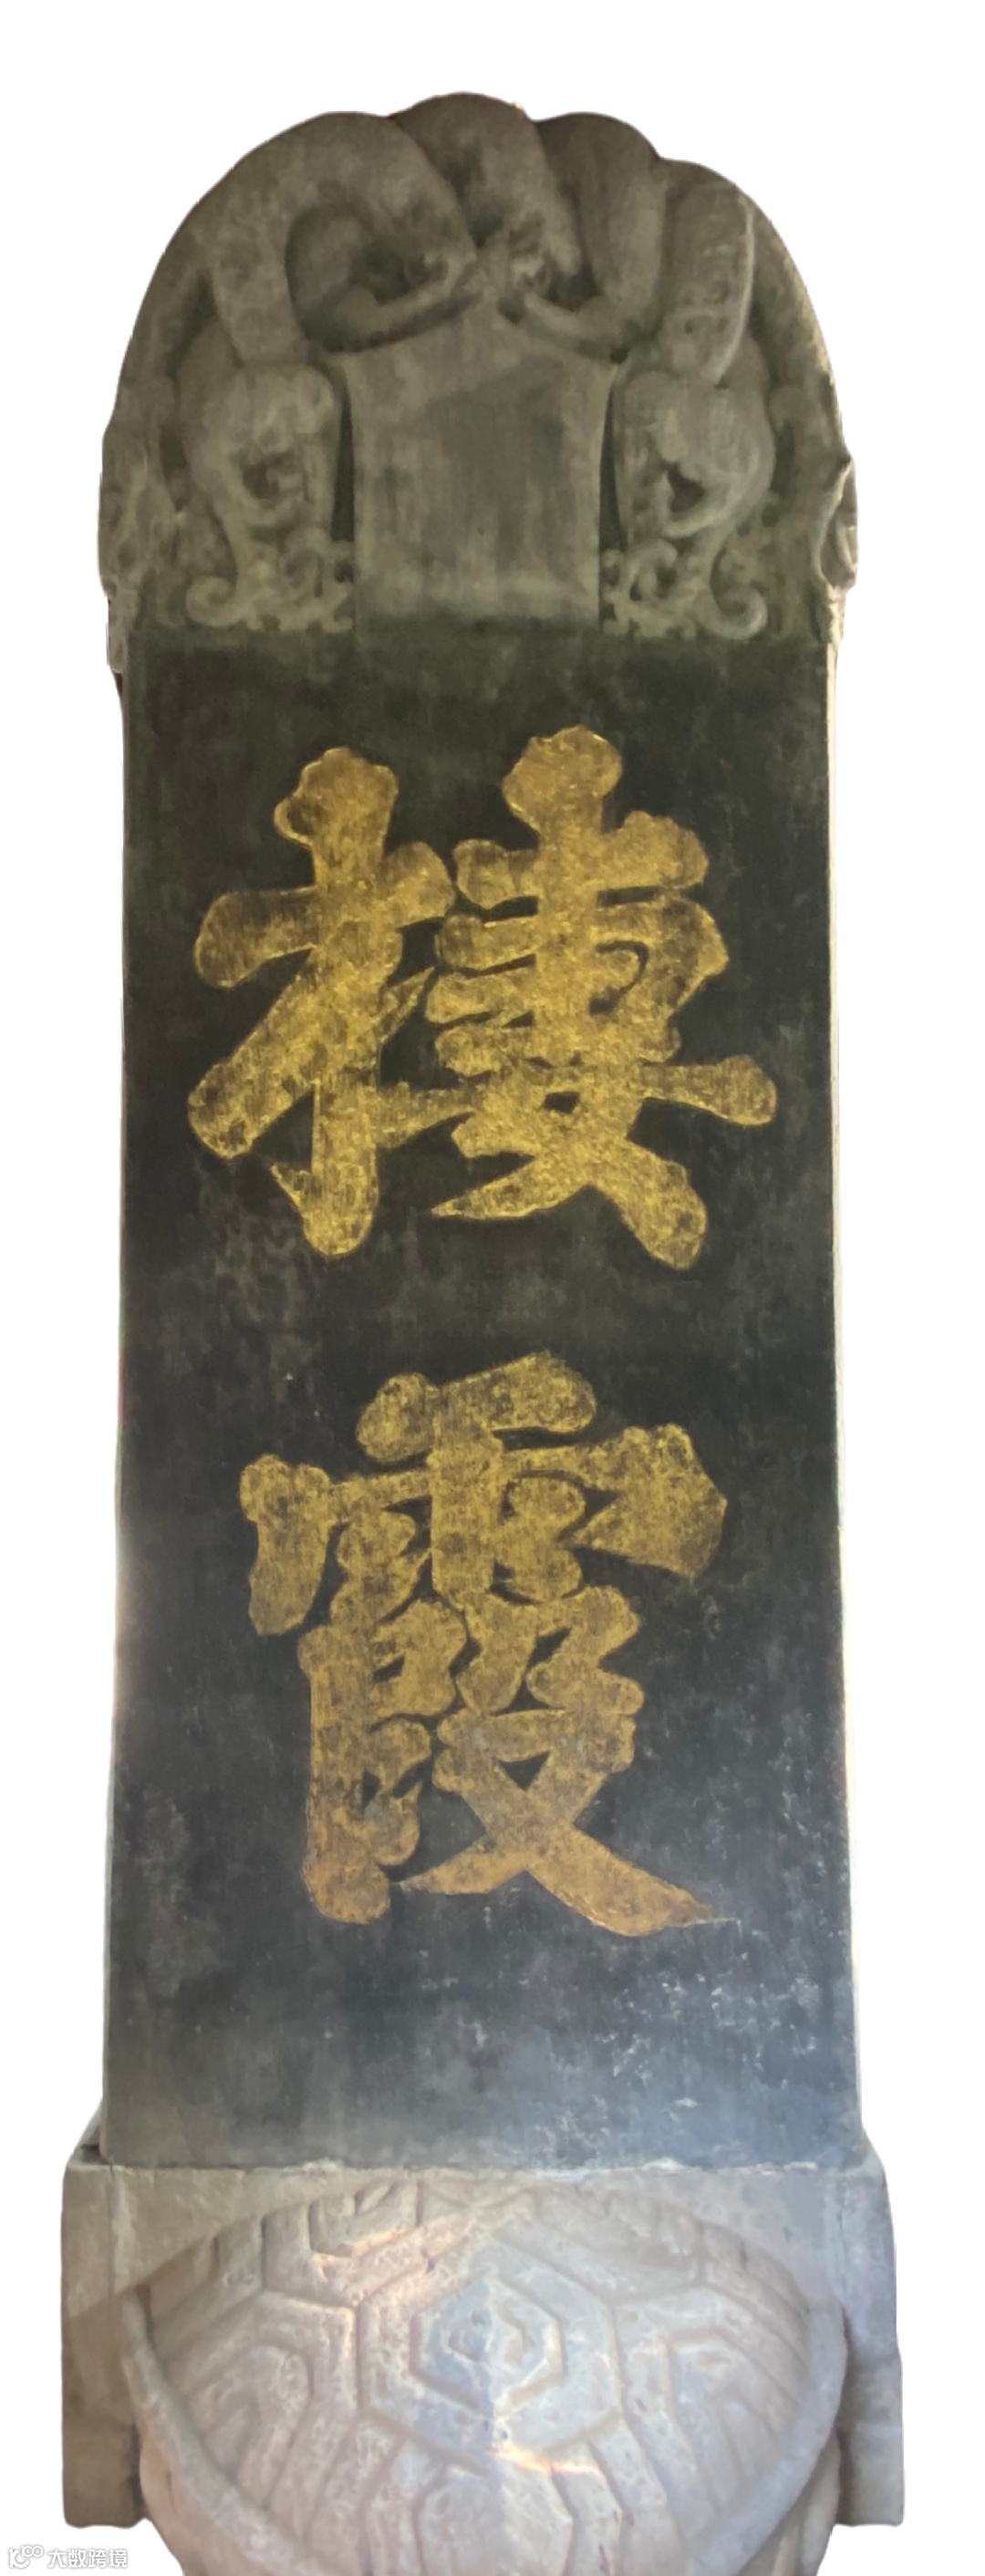 棲
霞
大数跨境